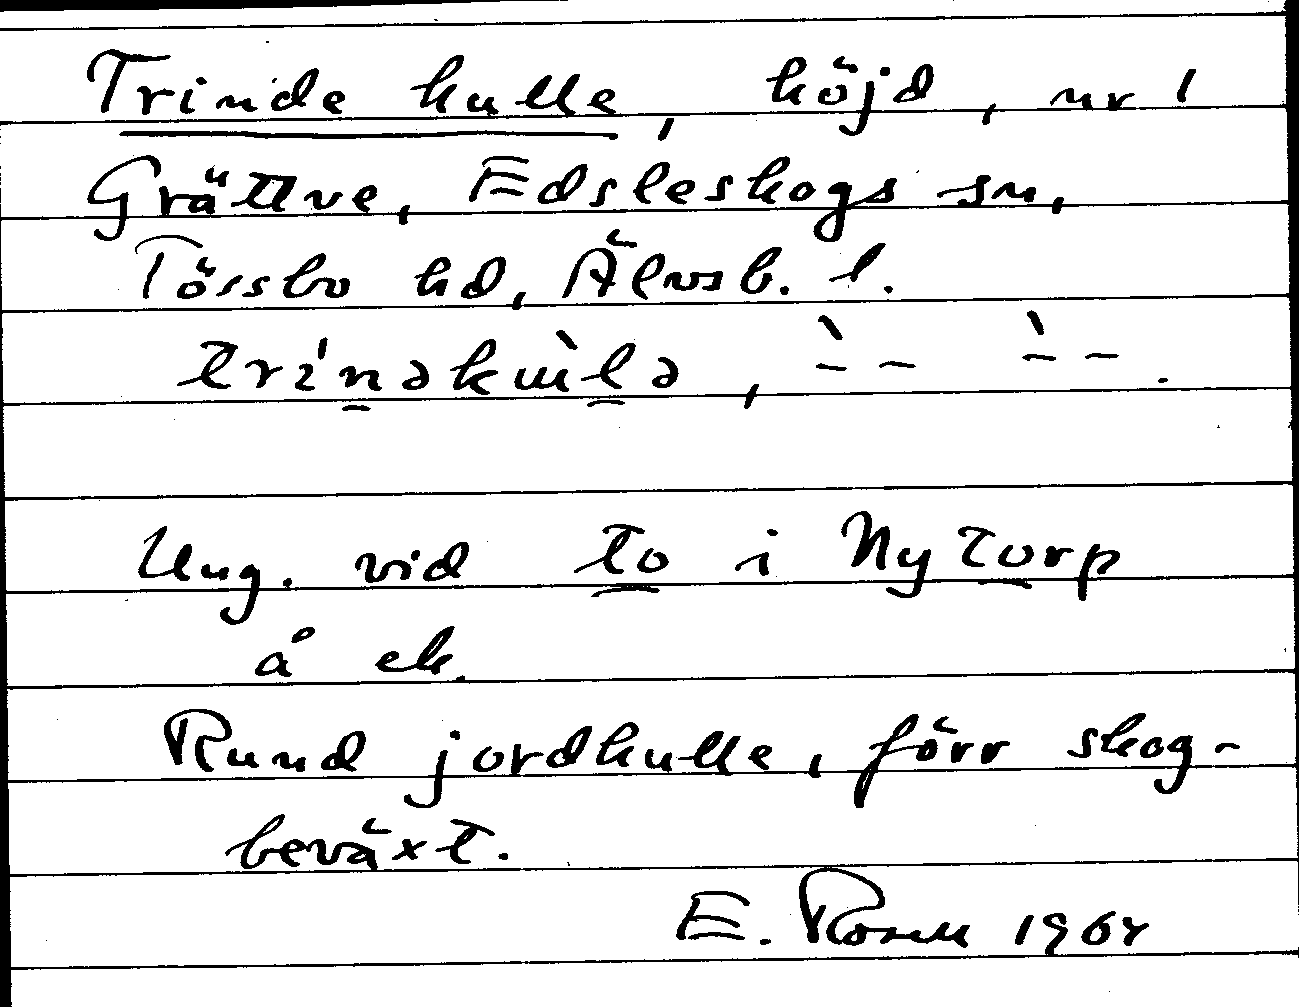 Trinde kulle, höjd, nr 1
Grättve, Edsleskogs sn,
Tössbo hd, Älvsb. l.
Ung. vid to i Nytorp
å ek.
Rund jordkulle, förr skog-
beväxt.
E. Rosell